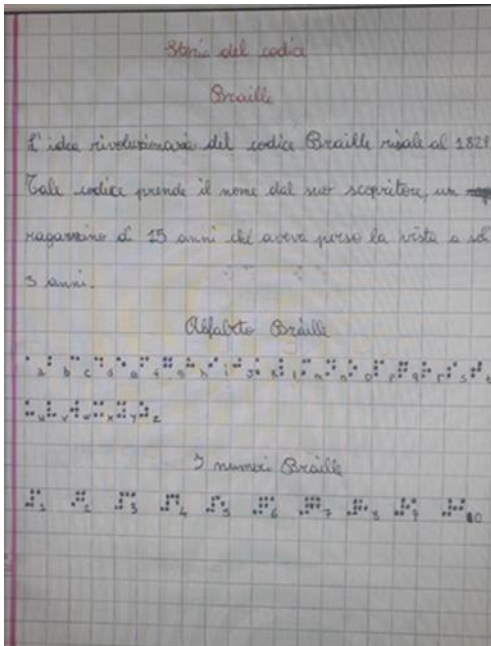 Storia del codice
Braille
L'idea rivoluzionaria del codice Braille risale al 1829
Tale codice prende il nome dal suo scopritore, un
ragazzino di 15 anni che aveva perso la vista a soli
3 anni.
Alfabeto Braille
a b c d e f g h i j k l m n o p q r s t
u v w x y z
I numeri Braille
1 2 3 4 5 6 7 8 9 10